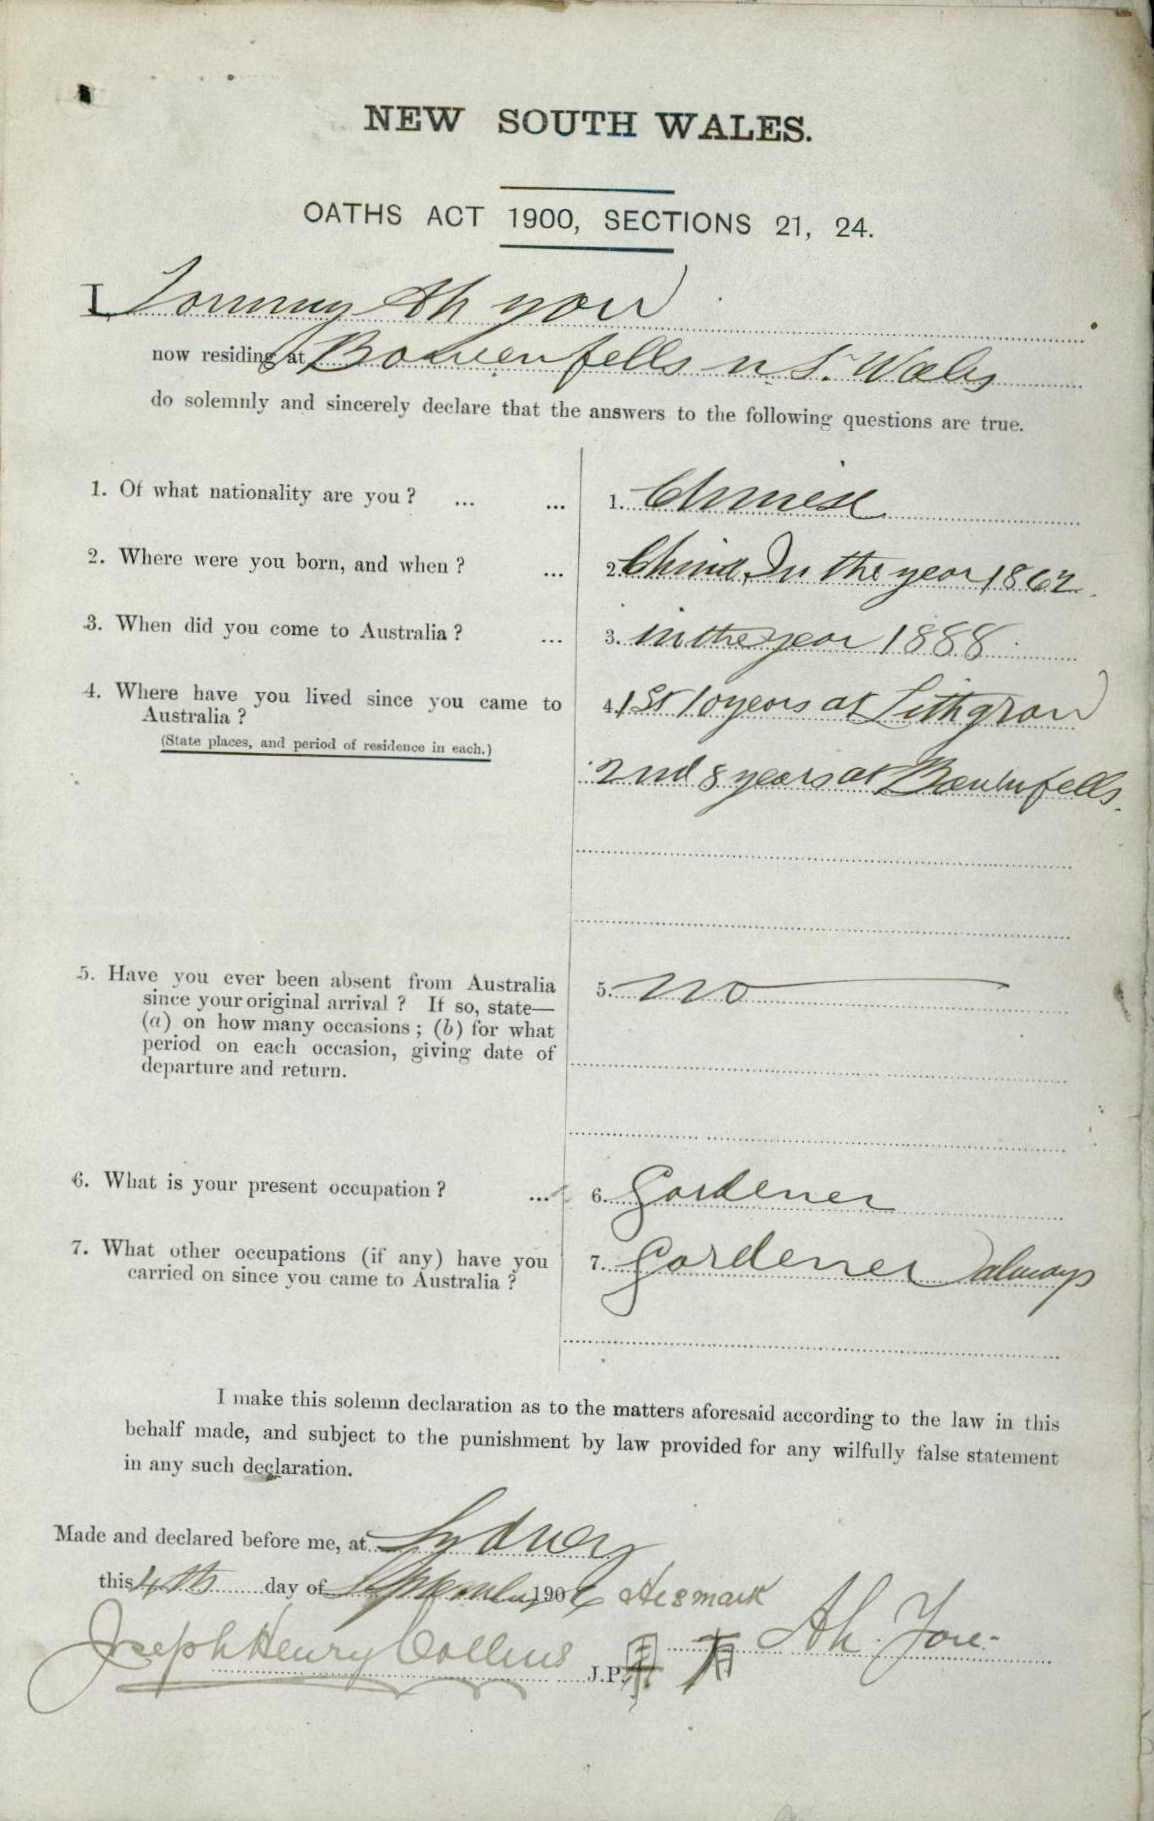 NEW SOUTH WALES.
OATHS ACT 1900, SECTIONS 21, 24.
I, Tommy Ah You
now residing at Bowenfells N. S. Wales
do solemnly and sincerely declare that the answers to the following questions are true.
1. Of what nationality are you? ... ... 1. Chinese
2. Where were you born, and when? ... 2. China, In the year 1862.
3. When did you come to Australia? ... 3. in the year 1888
4. Where have you lived since you came to 4. 1st 10 years at Lithgow
Australia?
(State places, and period of residence in each.)
2nd 8 years at Bowenfells.
5. Have you ever been absent from Australia 5. no
since your original arrival? If so, state—
(a) on how many occasions; (b) for what
period on each occasion, giving date of
departure and return.
6. What is your present occupation? ... 6. Gardener
7. What other occupations (if any) have you 7. Gardener always
carried on since you came to Australia?
I make this solemn declaration as to the matters aforesaid according to the law in this
behalf made, and subject to the punishment by law provided for any wilfully false statement
in any such declaration.
Made and declared before me, at Sydney
this 4th day of September 1906 His mark
Joseph Henry Collins J.P. 有 Ah